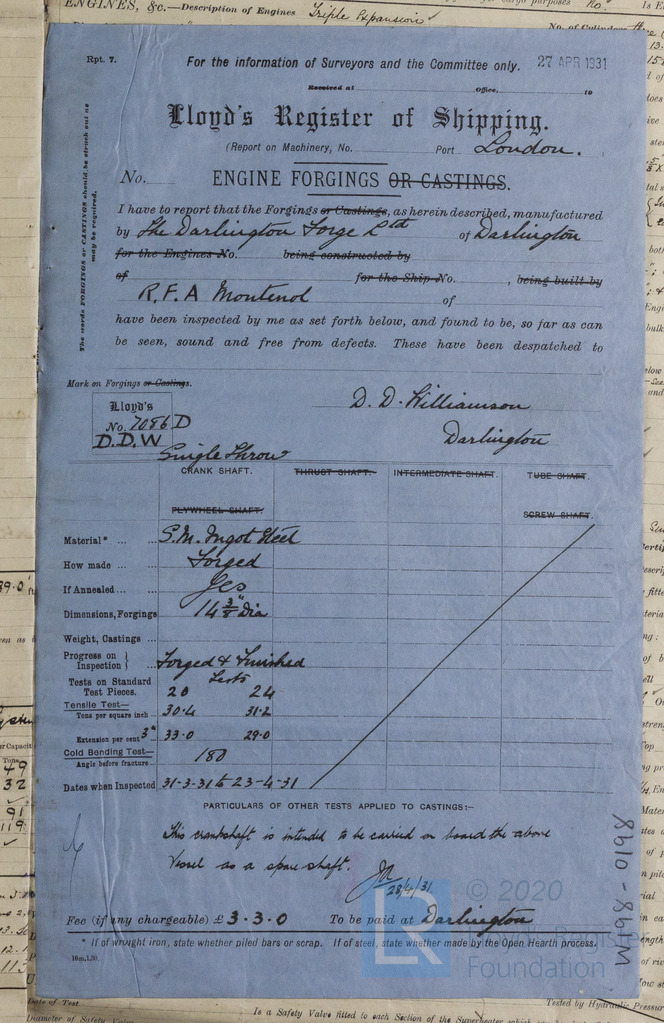 ENGINES, &c.—Description of Engines Triple Expansion
Rpt. 7.
For the information of Surveyors and the Committee only. 27 APR 1931
Received at Office, 19
Lloyd's Register of Shipping.
(Report on Machinery, No. Port London.
No. ENGINE FORGINGS OR CASTINGS.
The words FORGINGS or CASTINGS should be struck out as
may be required.
I have to report that the Forgings or Castings, as herein described, manufactured
by The Darlington Forge Ltd of Darlington
for the Engines No. being constructed by
of for the Ship No. , being built by
R.F.A Montenol of
have been inspected by me as set forth below, and found to be, so far as can
be seen, sound and free from defects. These have been despatched to
Mark on Forgings or Castings.
Lloyd's
No. 7086 D
D.D.W
D. D. Williamson
Darlington
Single Throw
CRANK SHAFT. THRUST SHAFT. INTERMEDIATE SHAFT. TUBE SHAFT.
PLYWHEEL SHAFT. SCREW SHAFT.
Material* ... ... S.M. Ingot Steel
How made ... Forged
If Annealed ... ... Yes
Dimensions, Forgings 14 3/8" Dia
Weight, Castings ...
Progress on
Inspection } ... Forged & Finished
Tests on Standard Tests
Test Pieces. 20 24
Tensile Test—
Tons per square inch .. 30.4 31.2
Extension per cent 3" 33.0 29.0
Cold Bending Test— 180
Angle before fracture ..
Dates when Inspected 31-3-31 to 23-4-31
PARTICULARS OF OTHER TESTS APPLIED TO CASTINGS:—
This crankshaft is intended to be carried on board the above
Vessel as a spare shaft.
28/4/31
Fee (if any chargeable) £ 3.3.0 To be paid at Darlington
* If of wrought iron, state whether piled bars or scrap. If of steel, state whether made by the Open Hearth process.
10m,1,30.
W868-0164
© 2020
LR
Lloyd's Register
Foundation
Date of Test
Tested by Hydraulic Pressure
Is a Safety Valve fitted to each Section of the Superheater which